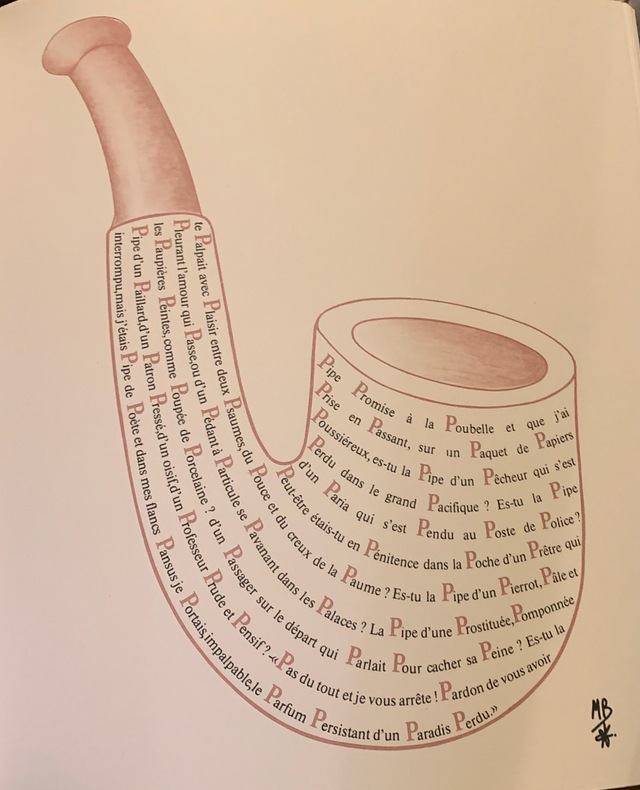 Pipe Promise à la Poubelle et que j'ai
Prise en Passant, sur un Paquet de Papiers
Poussiéreux, es-tu la Pipe d'un Pêcheur qui s'est
Perdu dans le grand Pacifique ? Es-tu la Pipe
d'un Paria qui s'est Pendu au Poste de Police ?
Peut-être étais-tu en Pénitence dans la Poche d'un Prêtre qui
te Palpait avec Plaisir entre deux Psaumes, du Pouce et du creux de la Paume ? Es-tu la Pipe d'un Pierrot, Pâle et
Pleurant l'amour qui Passe, ou d'un Pédant à Particule se Pavanant dans les Palaces ? La Pipe d'une Prostituée, Pomponnée
les Paupières Peintes, comme Poupée de Porcelaine ? d'un Passager sur le départ qui Parlait Pour cacher sa Peine ? Es-tu la
Pipe d'un Paillard, d'un Patron Pressé, d'un oisif, d'un Professeur Prude et Pensif ? -« Pas du tout et je vous arrête ! Pardon de vous avoir
interrompu, mais j'étais Pipe de Poète et dans mes flancs Pansus je Portais, impalpable, le Parfum Persistant d'un Paradis Perdu. »
MB